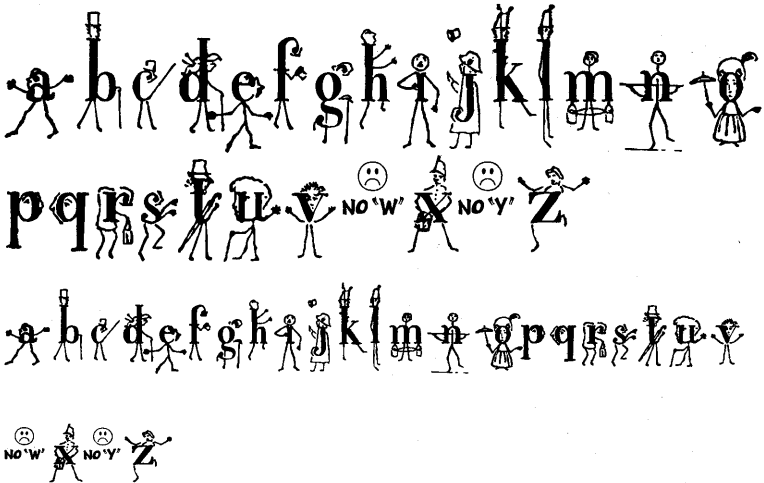 abcdefghijklmno
pqrstuv NO "W" x NO "Y" z
abcdefghijklmnopqrstuv
NO "W" x NO "Y" z